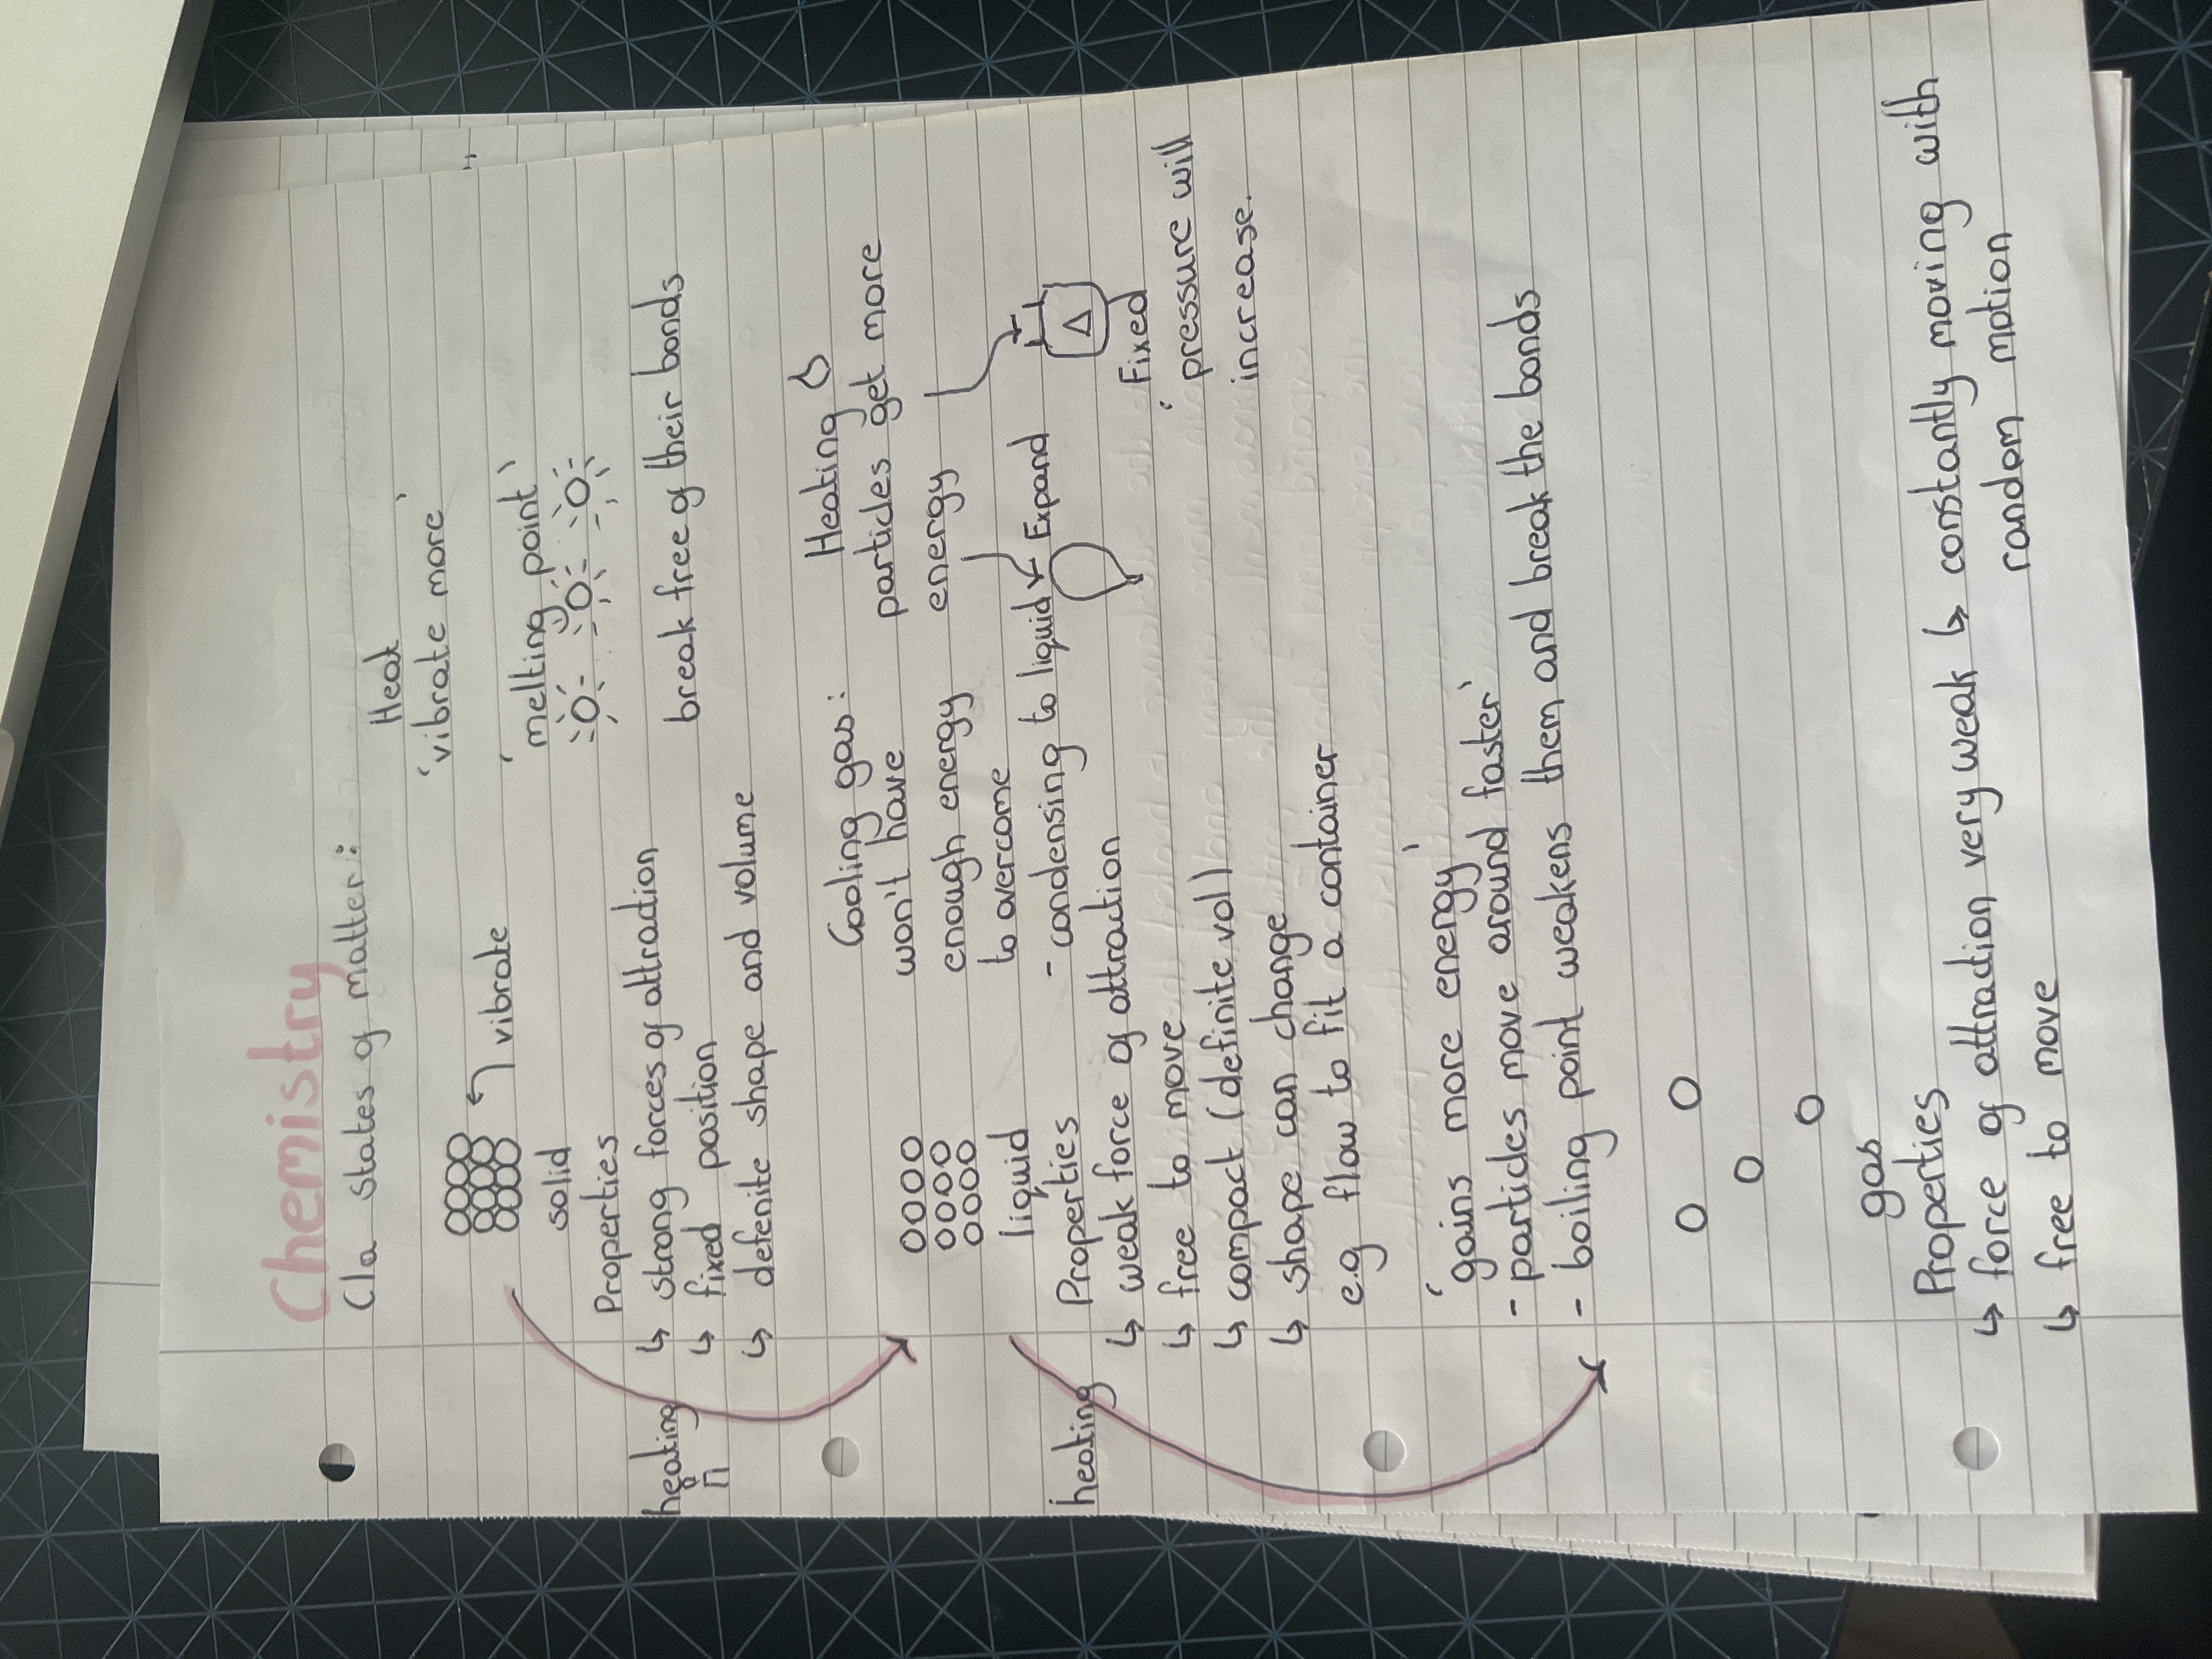 Chemistry
C1a States of matter:
Heat
'vibrate more'
vibrate
solid
'melting point'
Properties
↳ strong forces of attraction
↳ fixed position
↳ defenite shape and volume
heating
break free of their bonds
Cooling gas:
won't have
enough energy
to overcome
- condensing to liquid
Heating
particles get more
energy
Expand
Fixed
'pressure will
increase.
liquid
heating
Properties
↳ weak force of attraction
↳ free to move
↳ compact (definite vol)
↳ shape can change
e.g flow to fit a container
'gains more energy'
- particles move around faster'
- boiling point weakens them and break the bonds
gas
Properties
↳ force of attraction very weak ↳ constantly moving with
random motion
↳ free to move